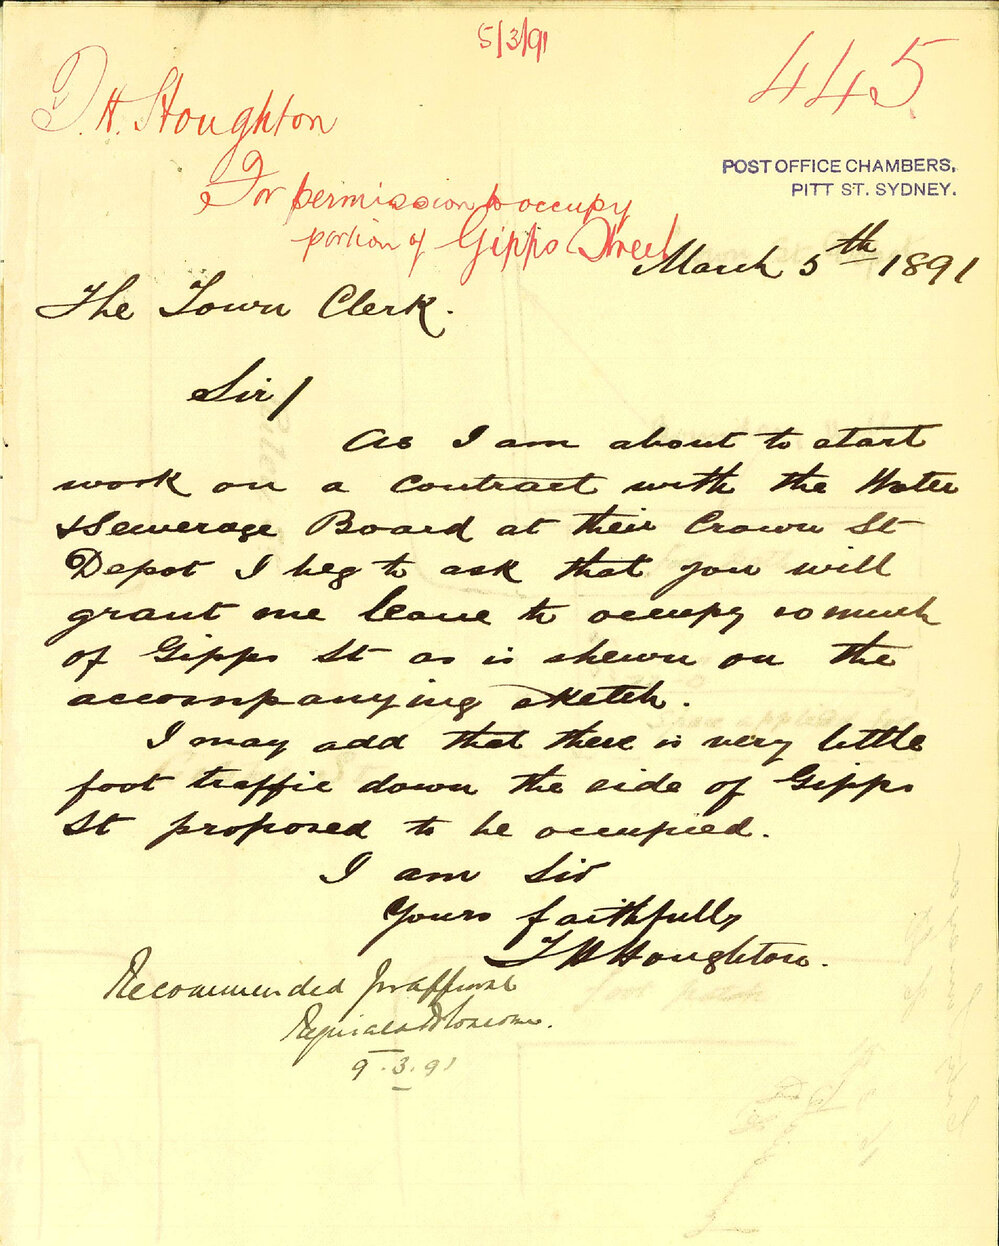 5/3/91
445
T. H. Houghton
For permission to occupy
portion of Gipps Street
POST OFFICE CHAMBERS,
PITT ST. SYDNEY.
March 5th 1891
The Town Clerk.
Sir/
As I am about to start
work on a contract with the Water
& Sewerage Board at their Crown St
Depot I beg to ask that you will
grant me leave to occupy so much
of Gipps St as is shewn on the
accompanying sketch.
I may add that there is very little
foot traffic down the side of Gipps
St proposed to be occupied.
I am Sir
Yours faithfully
T H Houghton.
Recommended for approval
9.3.91